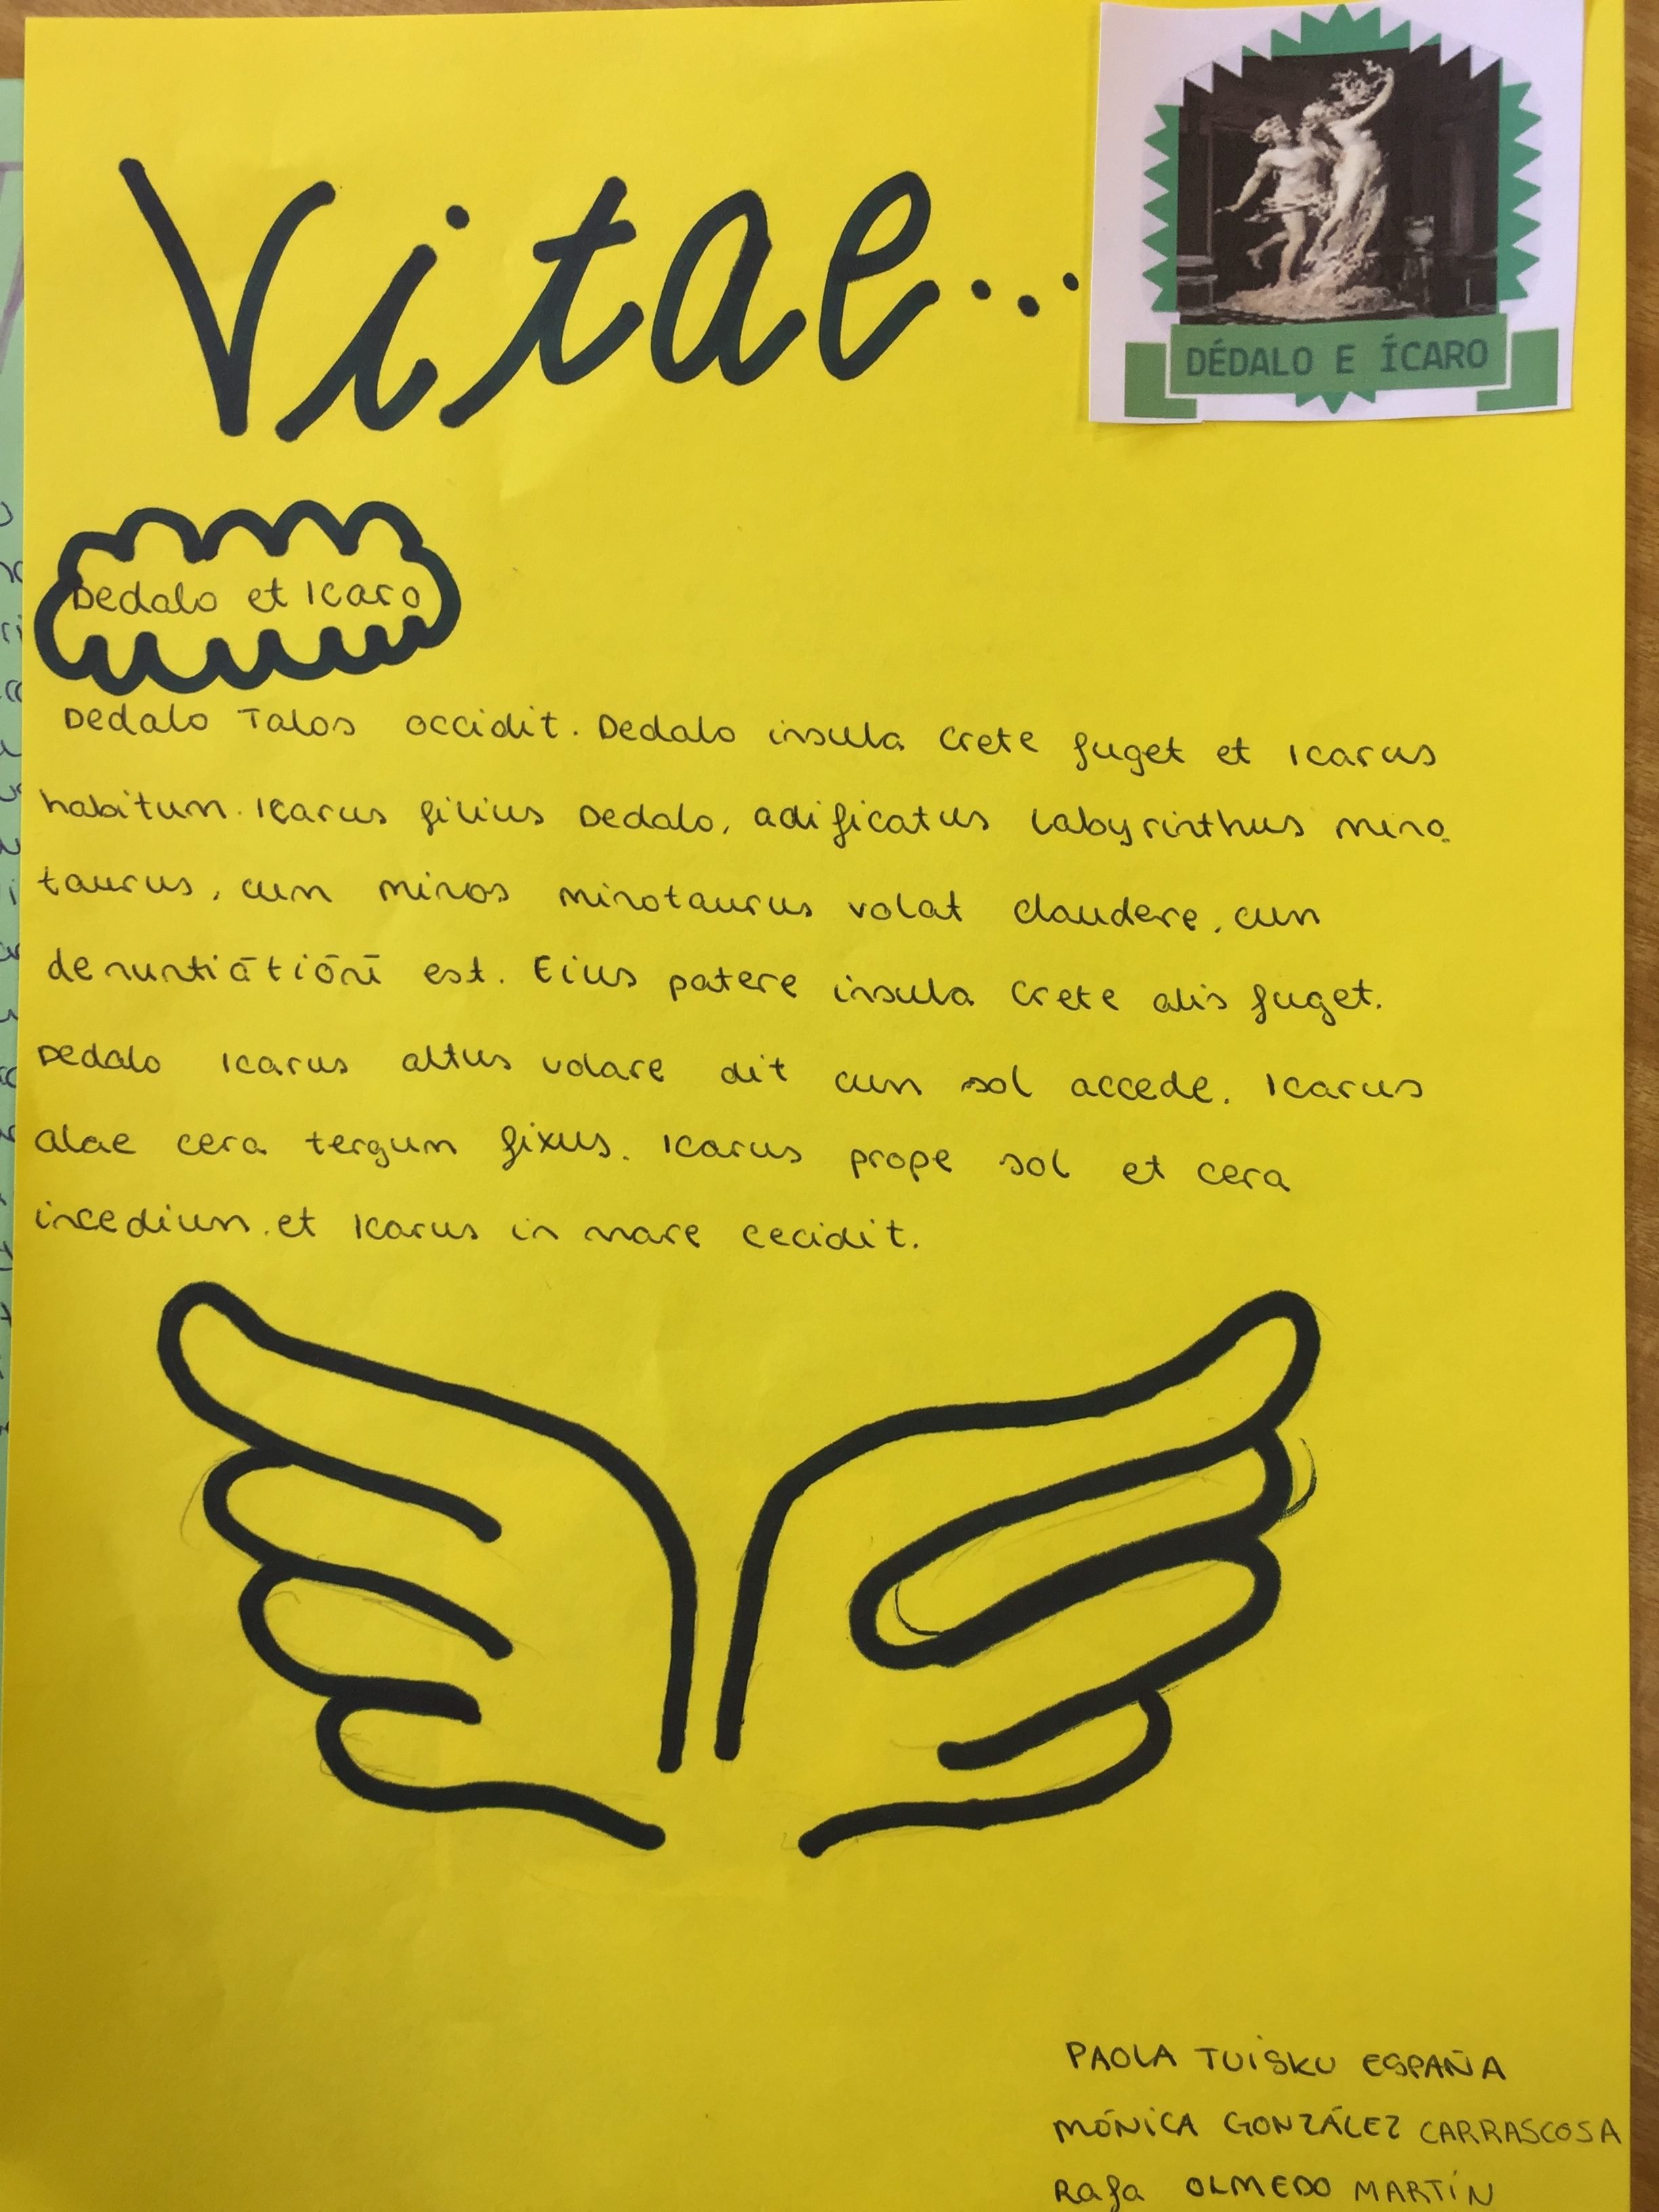 Vitae...
DÉDALO E ÍCARO
Dedalo et Icaro
Dedalo Talos occidit. Dedalo insula Crete fuget et Icarus
habitum. Icarus filius Dedalo, adificatus labyrinthus mino
taurus, cum minos minotaurus volat claudere, cum
denuntiātiōnī est. Eius patere insula Crete alis fuget.
Dedalo Icarus altus volare dit cum sol accede. Icarus
alae cera tergum fixus. Icarus prope sol et cera
incedium. et Icarus in mare cecidit.
PAOLA TUISKU ESPAÑA
MÓNICA GONZÁLEZ CARRASCOSA
Rafa OLMEDO MARTÍN